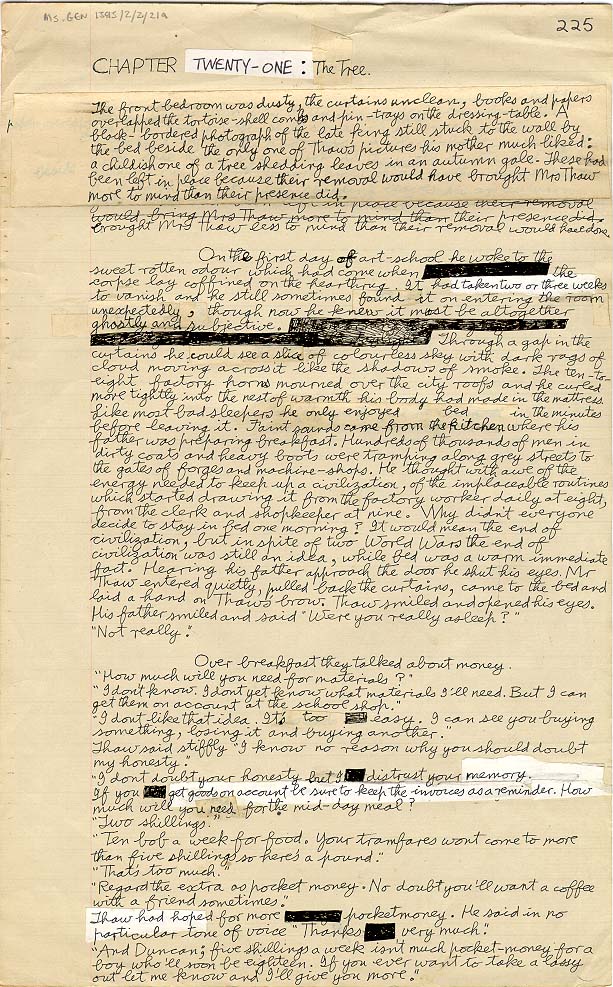 Ms. GEN 1595/2/2/21a
225
CHAPTER TWENTY-ONE: The Tree.
The front bedroom was dusty, the curtains unclean, books and papers
overlapped the tortoise-shell combs and pin-trays on the dressing-table. A
black-bordered photograph of the late king still stuck to the wall by
the bed beside the only one of Thaw's pictures his mother much liked:
a childish one of a tree shedding leaves in an autumn gale. These had
been left in place because their removal would have brought Mrs Thaw
more to mind than their presence did.
in place because their removal
would bring Mrs Thaw more to mind than their presence did.
brought Mrs Thaw less to mind than their removal would have done.
On the first day of art-school he woke to the
sweet rotten odour which had come when the
corpse lay coffined on the hearthrug. It had taken two or three weeks
to vanish and he still sometimes found it on entering the room
unexpectedly, though now he knew it must be altogether
ghostly and subjective.
Through a gap in the
curtains he could see a slice of colourless sky with dark rags of
cloud moving across it like the shadows of smoke. The ten-to-
eight factory horns mourned over the city roofs and he curled
more tightly into the nest of warmth his body had made in the mattress.
Like most bad sleepers he only enjoyed bed in the minutes
before leaving it. Faint sounds came from the kitchen where his
father was preparing breakfast. Hundreds of thousands of men in
dirty coats and heavy boots were tramping along grey streets to
the gates of forges and machine-shops. He thought with awe of the
energy needed to keep up a civilization, of the implacable routines
which started drawing it from the factory worker daily at eight,
from the clerk and shopkeeper at nine. Why didn't everyone
decide to stay in bed one morning? It would mean the end of
civilization, but in spite of two World Wars the end of
civilization was still an idea, while bed was a warm immediate
fact. Hearing his father approach the door he shut his eyes. Mr
Thaw entered quietly, pulled back the curtains, came to the bed and
laid a hand on Thaw's brow. Thaw smiled and opened his eyes.
His father smiled and said "Were you really asleep?"
"Not really."
Over breakfast they talked about money.
"How much will you need for materials?"
"I don't know. I dont yet know what materials I'll need. But I can
get them on account at the school shop."
"I dont like that idea. It's too easy. I can see you buying
something, losing it and buying another."
Thaw said stiffly "I know no reason why you should doubt
my honesty."
"I dont doubt your honesty but I distrust your memory.
If you get goods on account be sure to keep the invoices as a reminder. How
much will you need for the mid-day meal?
"Two shillings."
"Ten bob a week for food. Your tramfares wont come to more
than five shillings so here's a pound."
"That's too much."
"Regard the extra as pocket money. No doubt you'll want a coffee
with a friend sometimes."
Thaw had hoped for more pocketmoney. He said in no
particular tone of voice "Thanks very much."
"And Duncan; five shillings a week isn't much pocket-money for a
boy who'll soon be eighteen. If you ever want to take a lassy
out let me know and I'll give you more."